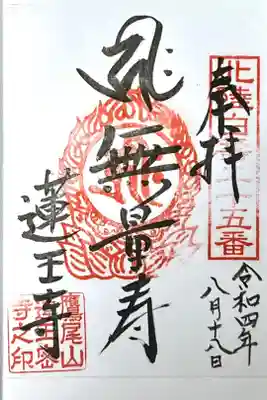 奉拝
北陸 五番
令和四年
八月十八日
無量寿
蓮王寺
鷹尾山
寺之印